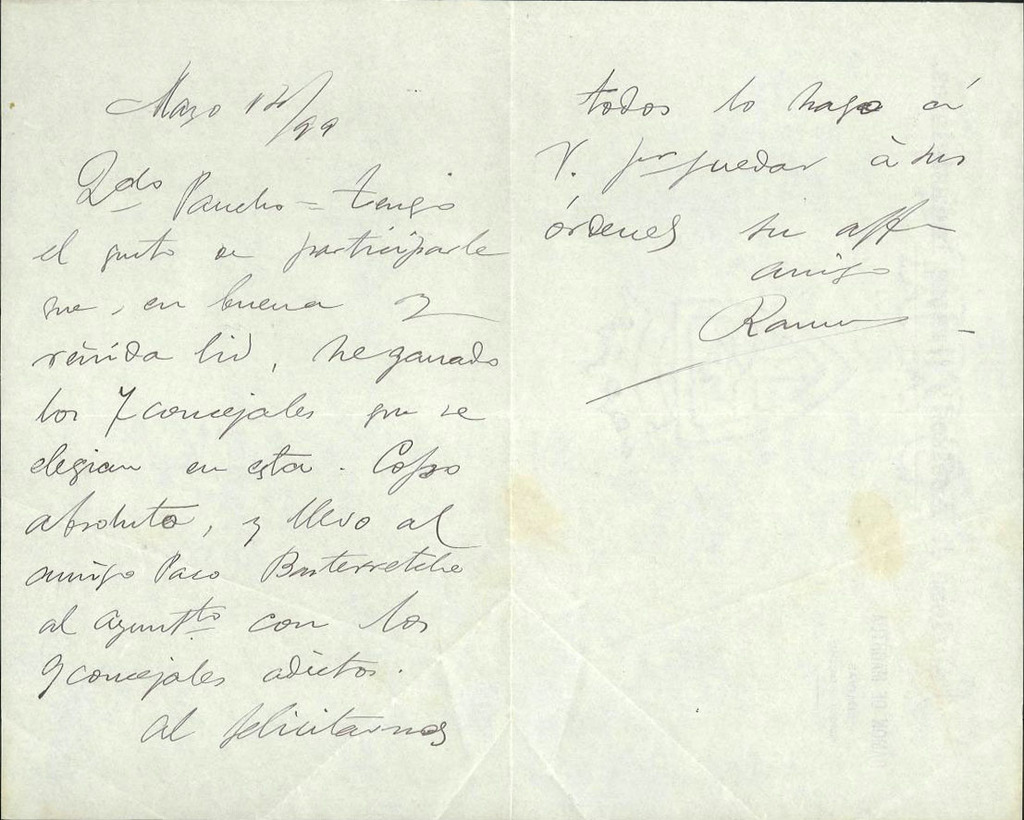 Mayo 14/99
Qdo Pancho = tengo
el gusto de participarle
que, en buena y
reñida lid, he ganado
los 7 concejales que se
elegian en esta. Copo
absoluto, y llevo al
amigo Paco Basterretche
al ayuntto con los
9 concejales adictos.
Al felicitarnos
todos lo hago á
V. por quedar à sus
órdenes su affmo
amigo
Ramon